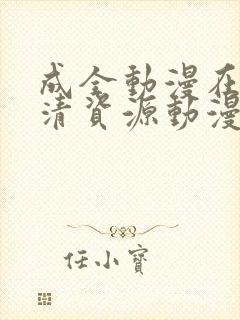 成全動漫在
清資源動漫
任小寶